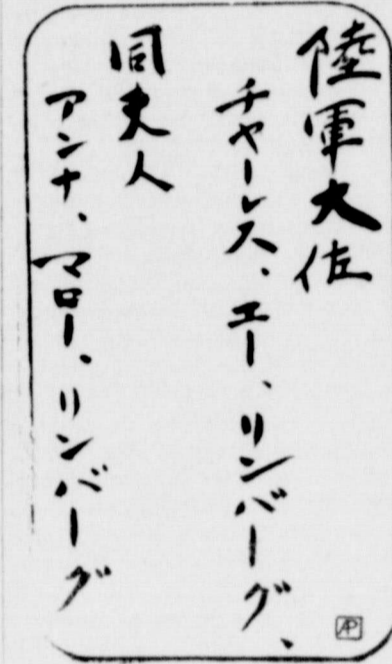 陸軍大佐
チャーレス、エー、リンバーグ、
同夫人
アンナ、マロー、リンバーグ
AP